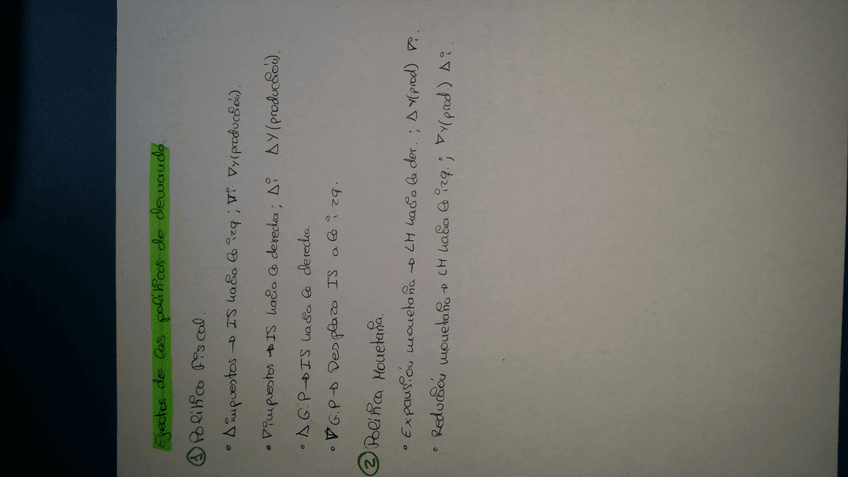 Efectos de las políticas de demanda.
① Política Fiscal.
• Δ impuestos → IS hacia la izq ; ∇i ∇y (producción).
• ∇ impuestos → IS hacia la derecha ; Δi ΔY (producción).
• Δ G.P → IS hacia la derecha.
• ∇ G.P → Desplaza IS a la izq.
② Política Monetaria.
• Expansión monetaria → LM hacia la der. ; ΔY (prod) ∇i.
• Reducción monetaria → LM hacia la izq. ; ∇y (prod) Δi.